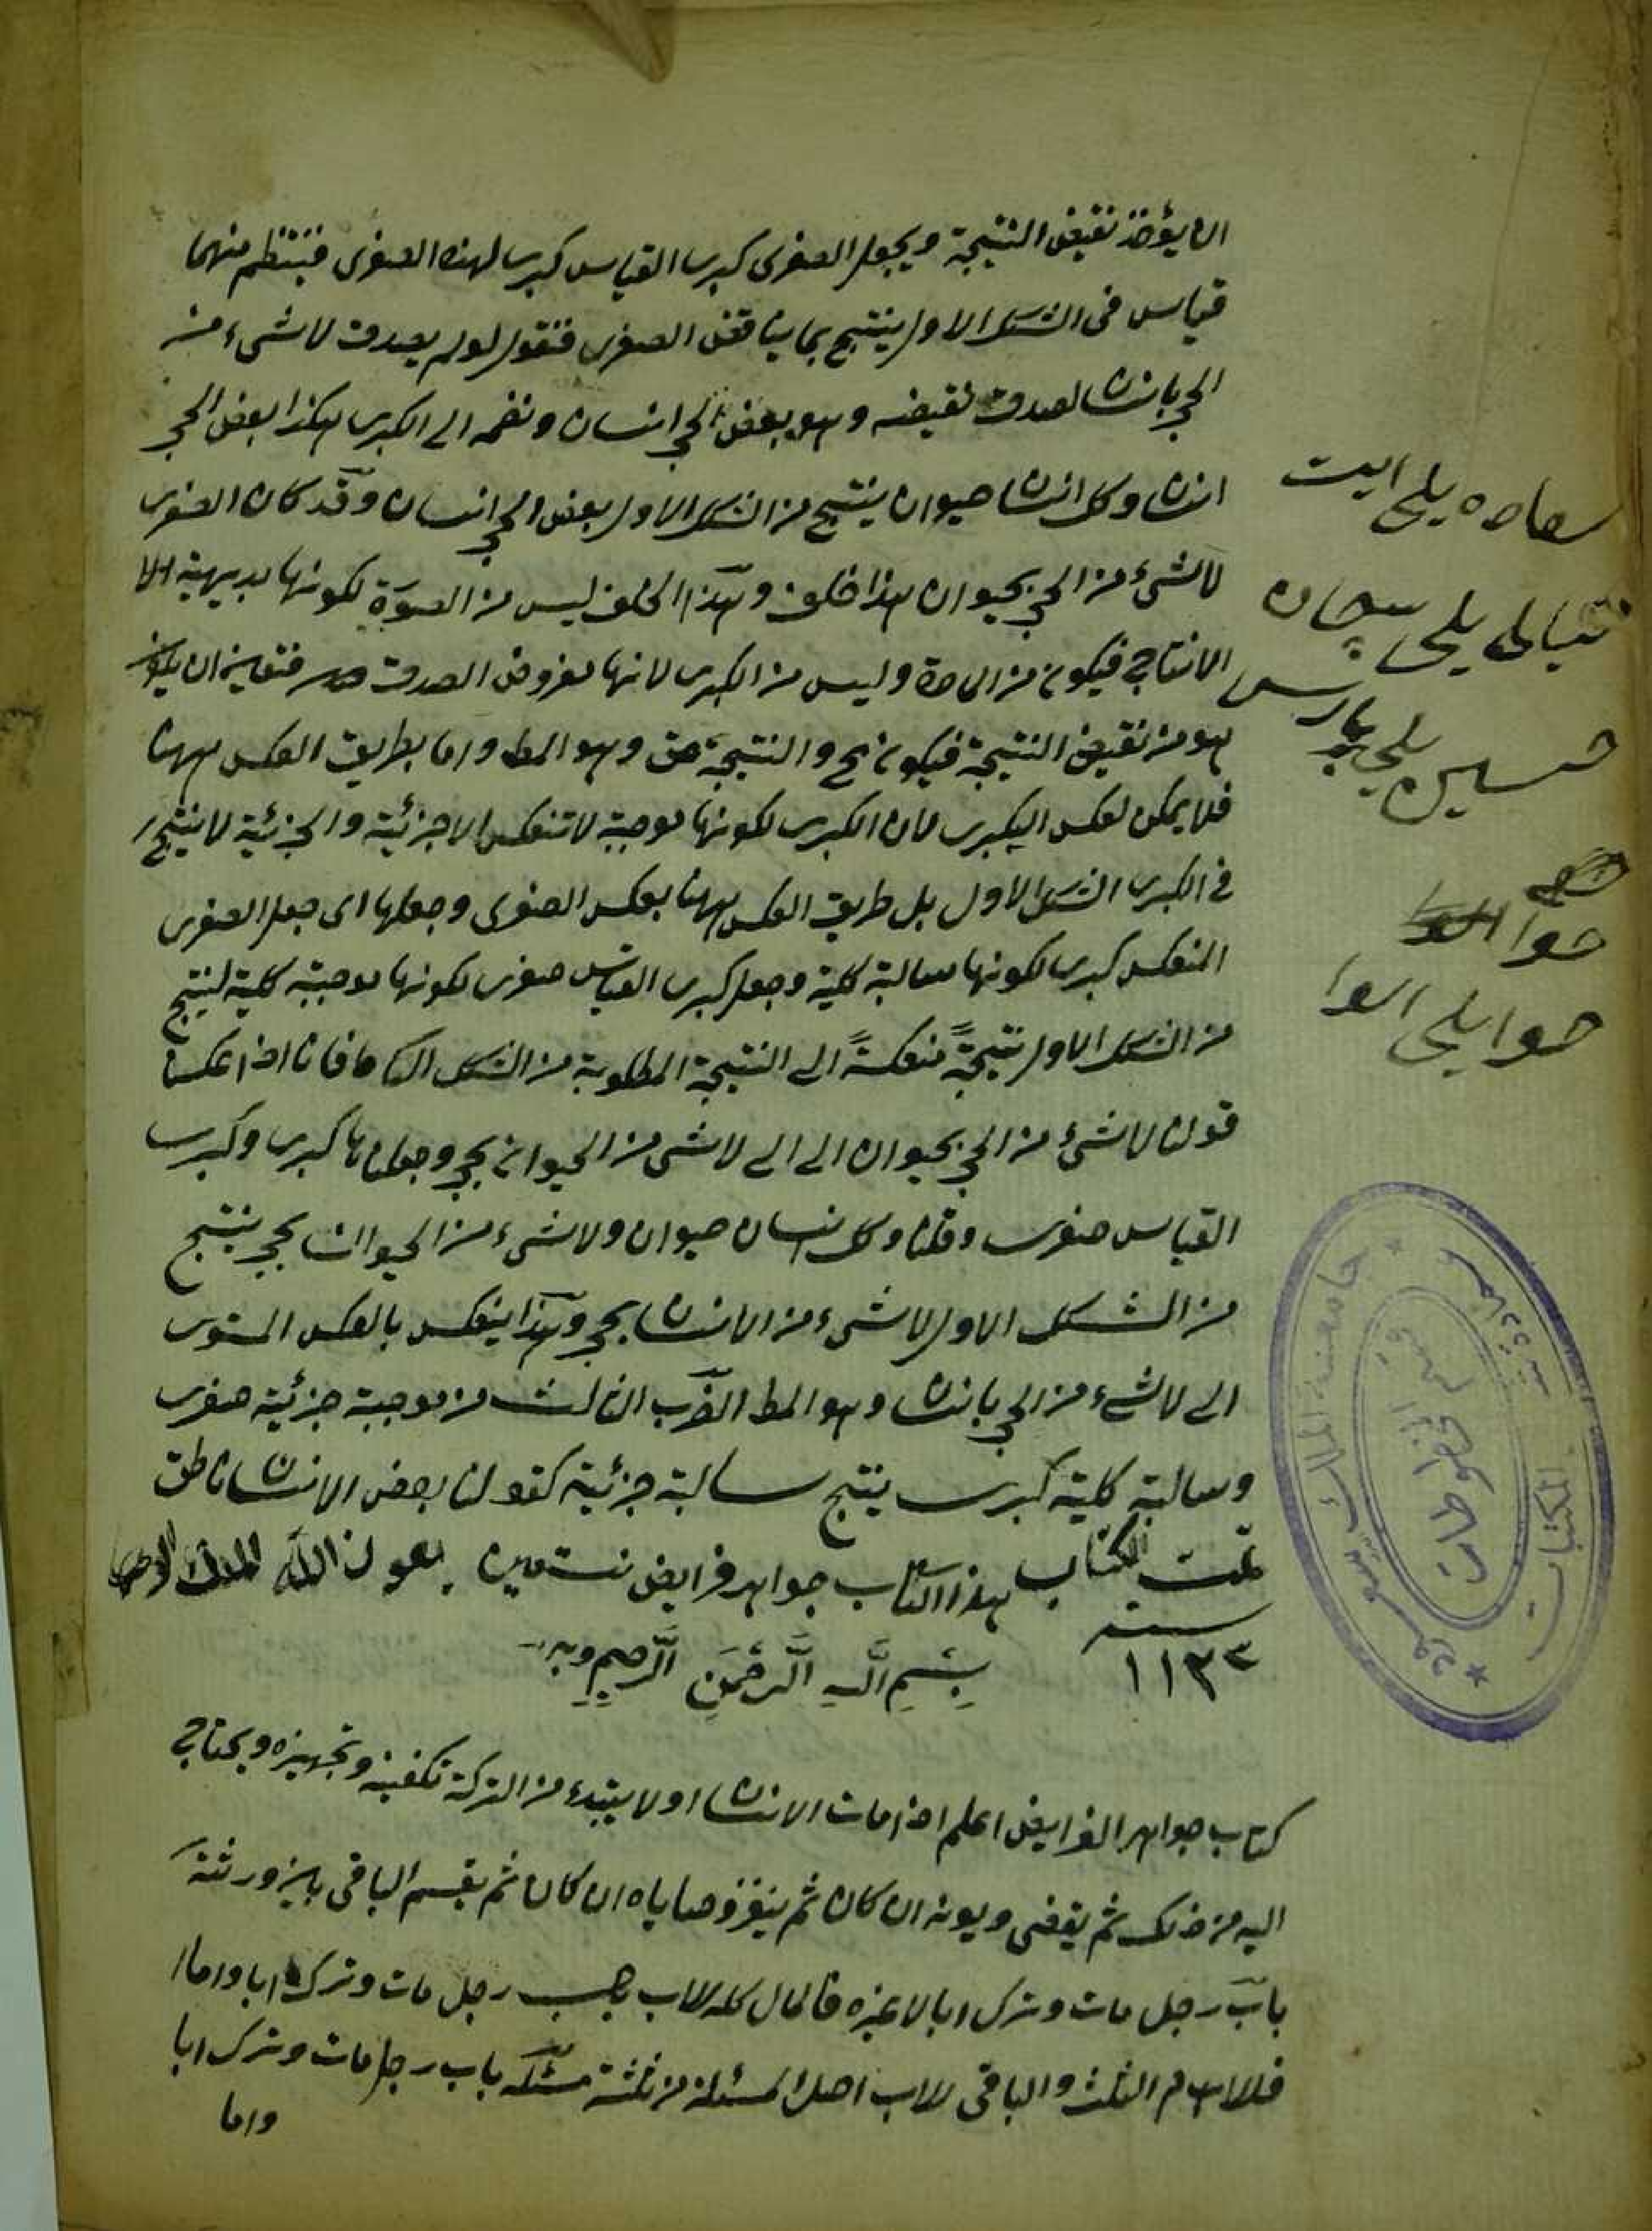 ان يؤخذ نقيض النتيجة ويجعل الصغرى كبرى القياس كبرى لهذه الصغرى فينتظم منهما
قياس فى الشكل الاول ينتج بما يناقض الصغرى فنقول لو لم يصدق لا شىء من
الحجر بانسان لصدق نقيضه وهو بعض الحجر انسان ونضمه الى الكبرى هكذا بعض الحجر
انسان وكل انسان حيوان ينتج من الشكل الاول بعض الحجر انسان وقد كان الصغرى
لا شىء من الحجر بحيوان هذا خلف وهذا الخلف ليس من الصورة لكونها بديهية الا
الانتاج فيكون من المادة وليس من الكبرى لانها مفروض الصدق فتعين ان يكون
هو من نقيض النتيجة فيكون مح والنتيجة حق وهو المط واما بطريق العكس ههنا
فلا يمكن لعكس الكبرى لان الكبرى لكونها موجبة لا تنعكس الا جزئية والجزئية لا ينتج
فى الكبرى الشكل الاول بل طريق العكس ههنا بعكس الصغرى وجعلها اى جعل الصغرى
المنعكس كبرى لكونها سالبة كلية وجعل كبرى القياس صغرى لكونها موجبة كلية لينتج
من الشكل الاول نتيجةً منعكسةً الى النتيجة المطلوبة من الشكل الثانى فانا اذا عكسنا
قولنا لا شىء من الحجر بحيوان الى الى لا شىء من الحيوان بحجر وجعلناها كبرى وكبرى
القياس صغرى وقلنا وكل انسان حيوان ولا شىء من الحيوان بحجر ينتج
من الشكل الاول لا شىء من الانسان بحجر وهذا ينعكس بالعكس المستوى
الى لا شىء من الحجر بانسان وهو المط الضرب الثالث من موجبة جزئية صغرى
وسالبة كلية كبرى ينتج سالبة جزئية كقولنا بعض الانسان ناطق
تمت الكتاب هذا الكتاب جواهر فرايض نستعين بعون الله الملك
سنه ١١٢٣
بِسْمِ اللَّهِ الرَّحْمَنِ الرَّحِيمِ وبه
كتاب جواهر الفرايض اعلم اذا مات الانسان اولا يبتدء من التركة تكفينه وتجهيزه ويحتاج
اليه من ذلك ثم يقضى ديونه ان كان ثم ينفذ وصاياه ان كان ثم يقسم الباقى بين ورثته
باب رجل مات وترك ابا لا غيره فالمال كله للاب باب رجل مات وترك ابا واما
فللام الثلث والباقى للاب اصل المسئلة من ثلثة مسئله باب رجل مات وترك ابا
واما
يلى ايت
يلى
حسين يلى
حوا
حوا يلى
جامعة الملك سعود
المكتبات
قسم المخطوطات